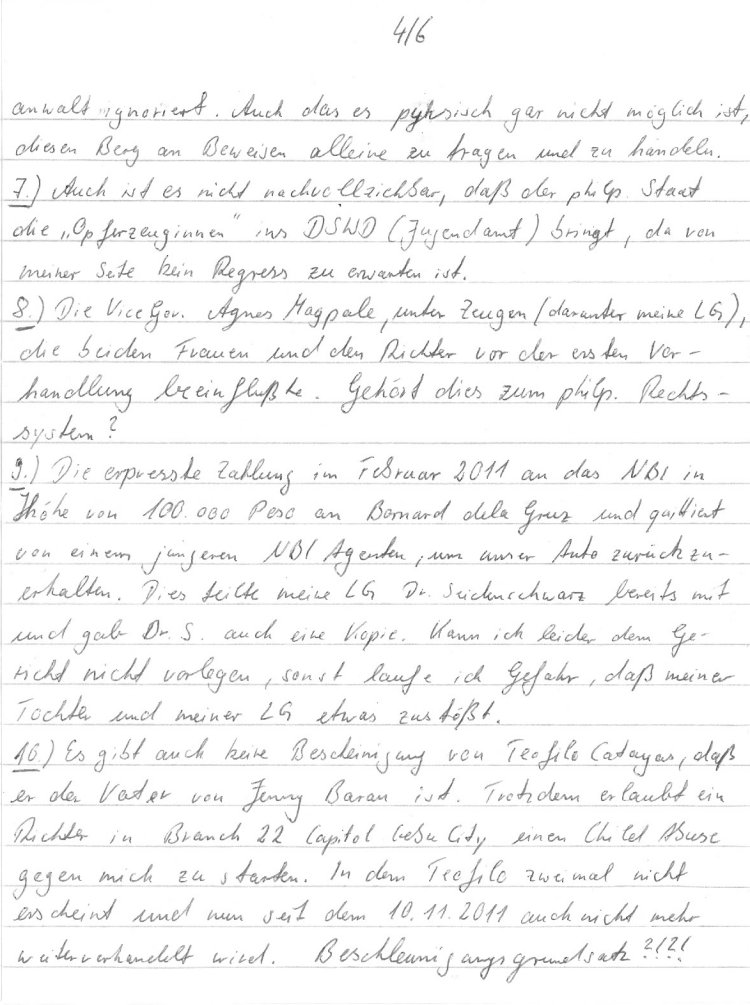 4/6
anwalt ignoriert. Auch das es pyhsisch gar nicht möglich ist,
diesen Berg an Beweisen alleine zu tragen und zu händeln.
7.) Auch ist es nicht nachvollziehbar, daß der philp. Staat
die „Opferzeuginnen" ins DSWD (Jugendamt) bringt, da von
meiner Seite kein Regress zu erwarten ist.
8.) Die ViceGov. Agnes Magpale, unter Zeugen (darunter meine LG),
die beiden Frauen und den Richter vor der ersten Ver-
handlung beeinflußte. Gehört dies zum philp. Rechts-
system?
9.) Die erpresste Zahlung im Februar 2011 an das NBI in
Höhe von 100.000 Peso an Bornard dela Gruz und quittiert
von einem jüngeren NBI Agenten, um unser Auto zurückzu-
erhalten. Dies teilte meine LG Dr. Seidenschwarz bereits mit
und gab Dr. S. auch eine Kopie. Kann ich leider dem Ge-
richt nicht vorlegen, sonst laufe ich Gefahr, daß meiner
Tochter und meiner LG etwas zustößt.
10.) Es gibt auch keine Bescheinigung von Teofilo Catayas, daß
er der Vater von Jenny Baran ist. Trotzdem erlaubt ein
Richter in Branch 22 Capitol Cebu City einen Child Abuse
gegen mich zu starten. In dem Teofilo zweimal nicht
erscheint und nun seit dem 10.11.2011 auch nicht mehr
weiterverhandelt wird. Beschleunigungsgrundsatz?!?!